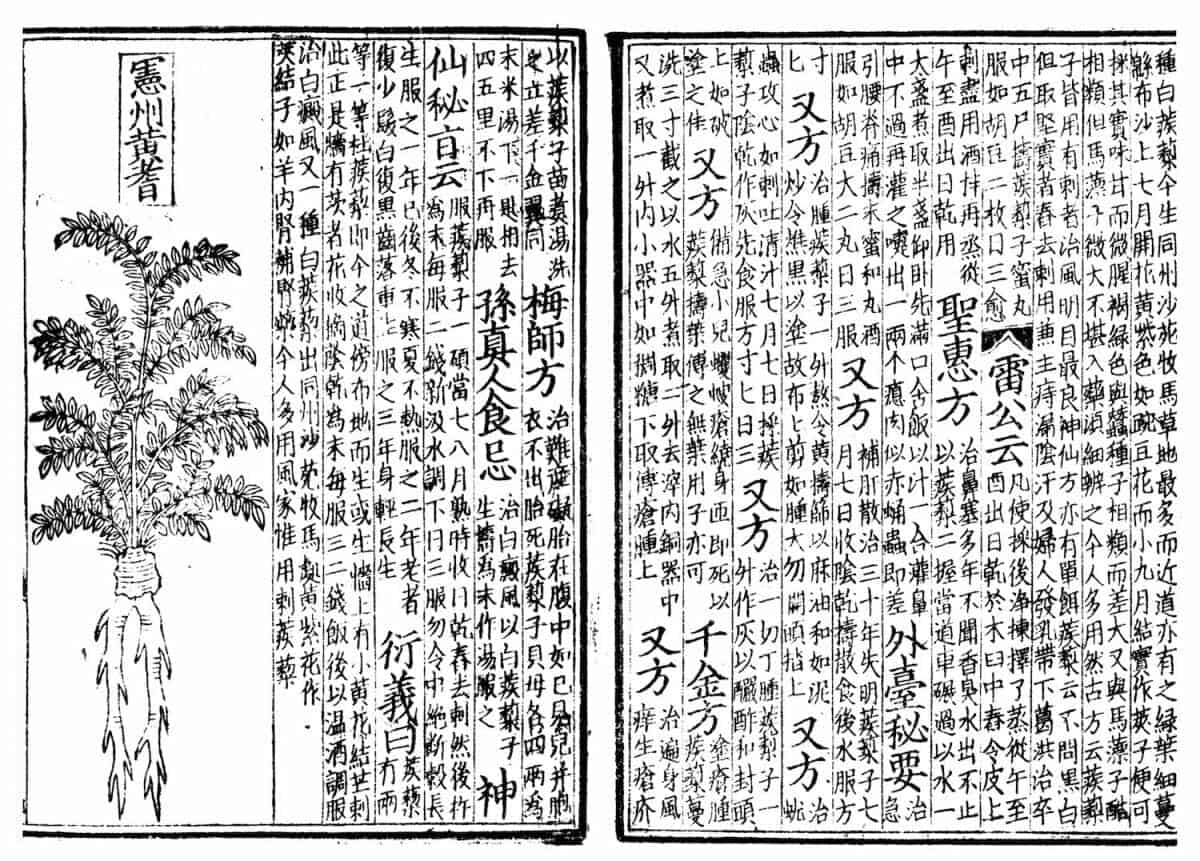 種白蒺藜今生同州沙苑牧馬草地最多而近道亦有之綠葉細蔓
緜布沙上七月開花黃紫色如豌豆花而小九月結實作莢子便可
採其實味甘而微腥褐綠色與蠶種子相類而差大又與馬薸子酷
相類但馬薸子微大不堪入藥須細辨之今人多用然古方云蒺藜
子皆用有刺者治風明目最良神仙方亦有單餌蒺藜云不問黑白
但取堅實者舂去刺用兼主痔漏陰汗及婦人發乳帶下葛洪治卒
中五尸擣蒺藜子蜜丸
服如胡豆二枚日三愈
雷公云
凡使採後淨揀擇了蒸從午至
酉出日乾於木臼中舂令皮上
刺盡用酒拌再蒸從
午至酉出日乾用
聖惠方
治鼻塞多年不聞香臭水出不止
以蒺藜二握當道車碾過以水一
大盞煮取半盞仰卧先滿口含飯以汁一合灌鼻
中不過再灌之嚏出一兩个瘜肉似赤蛹蟲即差
外臺秘要
治急
引腰脊痛擣末蜜和丸酒
服如胡豆大二丸日三服
又方
補肝散治三十年失明蒺藜子七
月七日收陰乾擣散食後水服方
寸匕
又方
治腫蒺藜子一升熬令黃擣篩以麻油和如泥
炒令燋黑以塗故布上剪如腫大勿開頭搨上
又方
治蚘
蟲攻心如刺吐清汁七月七日採蒺
藜子陰乾作灰先食服方寸七日三
又方
治一切丁腫蒺梨子一
升作灰以釅酢和封頭
上如破
塗之佳
又方
備急小兒蠼螋瘡繞身匝即死以
蒺藜擣葉傅之無葉用子亦可
千金方
塗瘡腫
蒺梨蔓
洗三寸截之以水五升煮取二升去滓內銅器中
又煮取一升內小器中如稠糖下取傅瘡腫上
又方
治遍身風
痒生瘡疥
以蒺藜子苗煮湯洗
之立差千金翼同
梅師方
治難產礙胎在腹中如已見兒并胞
衣不出胎死蒺藜子貝母各四兩為
末米湯下一匙相去
四五里不下再服
孫真人食忌
治白癜風以白蒺藜子
生擣為末作湯服之
神
仙秘旨云
服蒺藜子一碩當七八月熟時收日乾舂去刺然後杵
為末每服二錢新汲水調下日三服勿令中絕斷穀長
生服之一年已後冬不寒夏不熱服之二年老者
復少髮白復黑齒落重生服之三年身輕長生
衍義曰
蒺藜有兩
等一等杜蒺藜即今之道傍布地而生或生墻上有小黃花結芒刺
此正是墻有茨者花收摘陰乾為末每服三二錢飯後以溫酒調服
治白癜風又一種白蒺藜出同州沙苑牧馬處黃紫花作
莢結子如羊內腎補腎藥今人多用風家惟用刺蒺藜
憲州黃耆